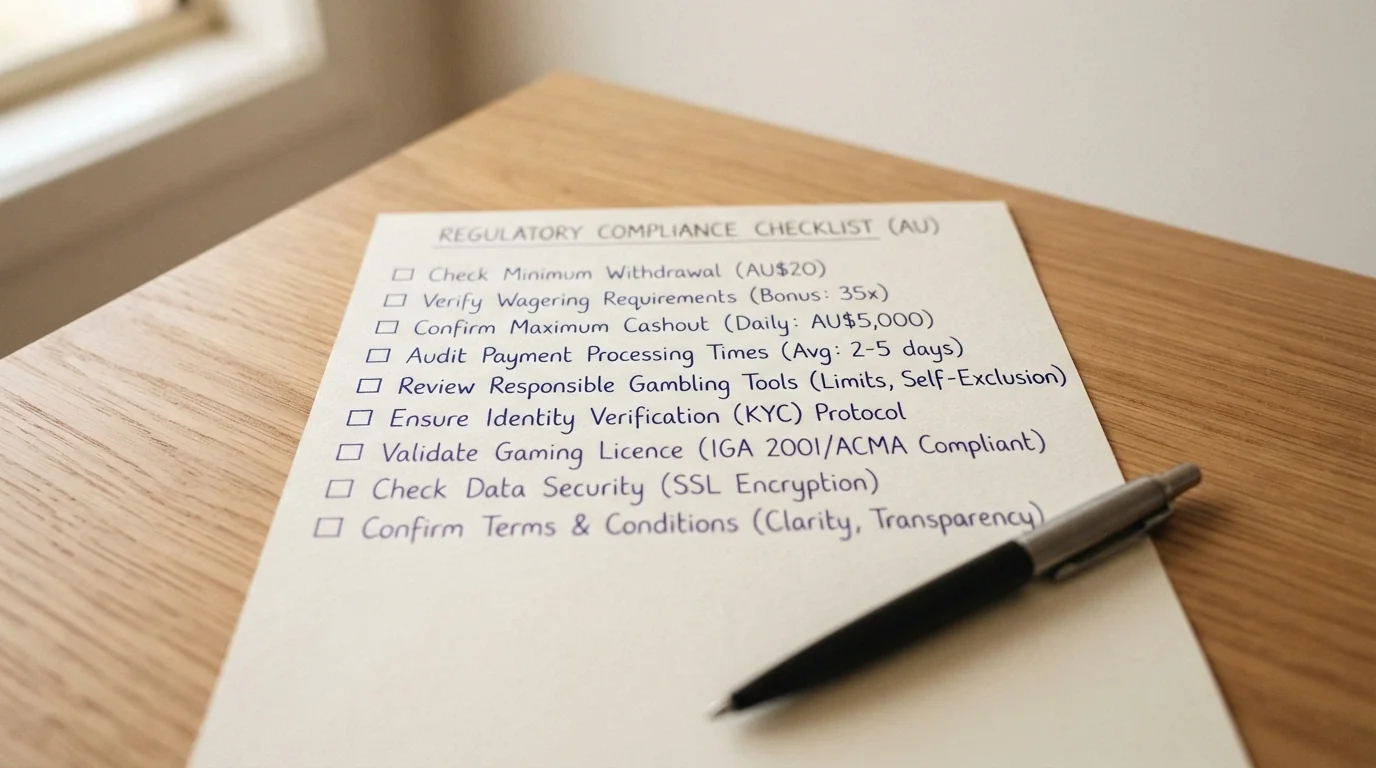 REGULATORY COMPLIANCE CHECKLIST (AU)
Check Minimum Withdrawal (AU$20)
Verify Wagering Requirements (Bonus: 35x)
Confirm Maximum Cashout (Daily: AU$5,000)
Audit Payment Processing Times (Avg: 2-5 days)
Review Responsible Gambling Tools (Limits, Self-Exclusion)
Ensure Identity Verification (KYC) Protocol
Validate Gaming Licence (IGA 2001/ACMA Compliant)
Check Data Security (SSL Encryption)
Confirm Terms & Conditions (Clarity, Transparency)